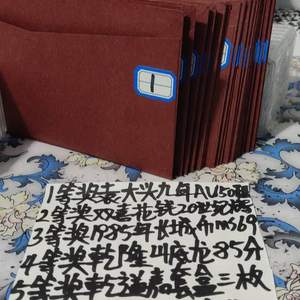 1
1等奖袁大头九年AU50
2等奖双莲花钱20世纪
3等奖1985年长城币ms69
4等奖乾隆 85分
5等奖乾 套盒三枚